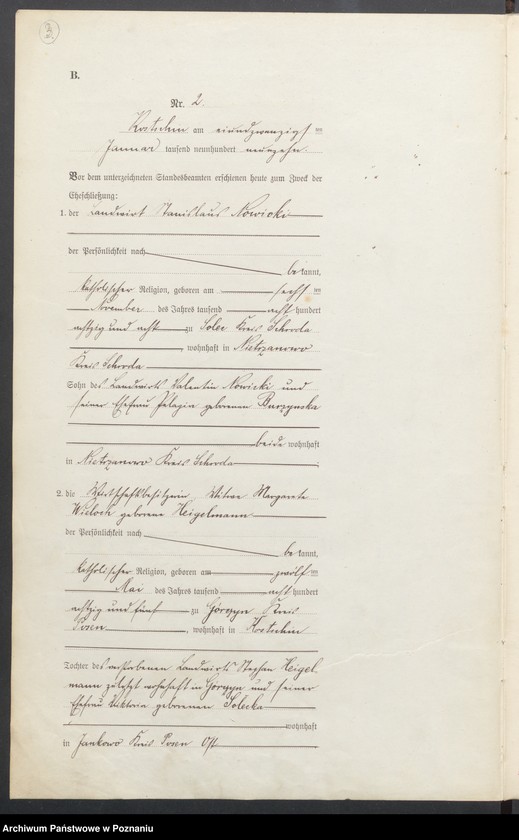 B.
Nr. 2
Kostschin am einundzwanzigsten
Januar tausend neunhundert neunzehn.
Vor dem unterzeichneten Standesbeamten erschienen heute zum Zweck der
Eheschließung:
1. der Landwirt Stanislaus Nowicki
der Persönlichkeit nach
be kannt,
katholischer Religion, geboren am sechsten
November des Jahres tausend acht hundert
achtzig und acht zu Solec Kreis Schroda
, wohnhaft in Nietrzanowo
Kreis Schroda
Sohn des Landwirts Valentin Nowicki und
seiner Ehefrau Pelagia geborenen
beide wohnhaft
in Nietrzanowo Kreis Schroda ;
2. die Wirtschaftsbesitzerin Witwe Margarete
Wieloch geborene Heigelmann
der Persönlichkeit nach
be kannt,
katholischer Religion, geboren am zwölften
Mai des Jahres tausend acht hundert
achtzig und fünf zu Kreis
Posen , wohnhaft in Kostschin
Tochter des verstorbenen Landwirts Stephan Heigel-
mann zuletzt wohnhaft in und seiner
Ehefrau Viktoria geborenen Solecka
wohnhaft
in Jankowo Kreis Posen Ost
Archiwum Państwowe w Poznaniu